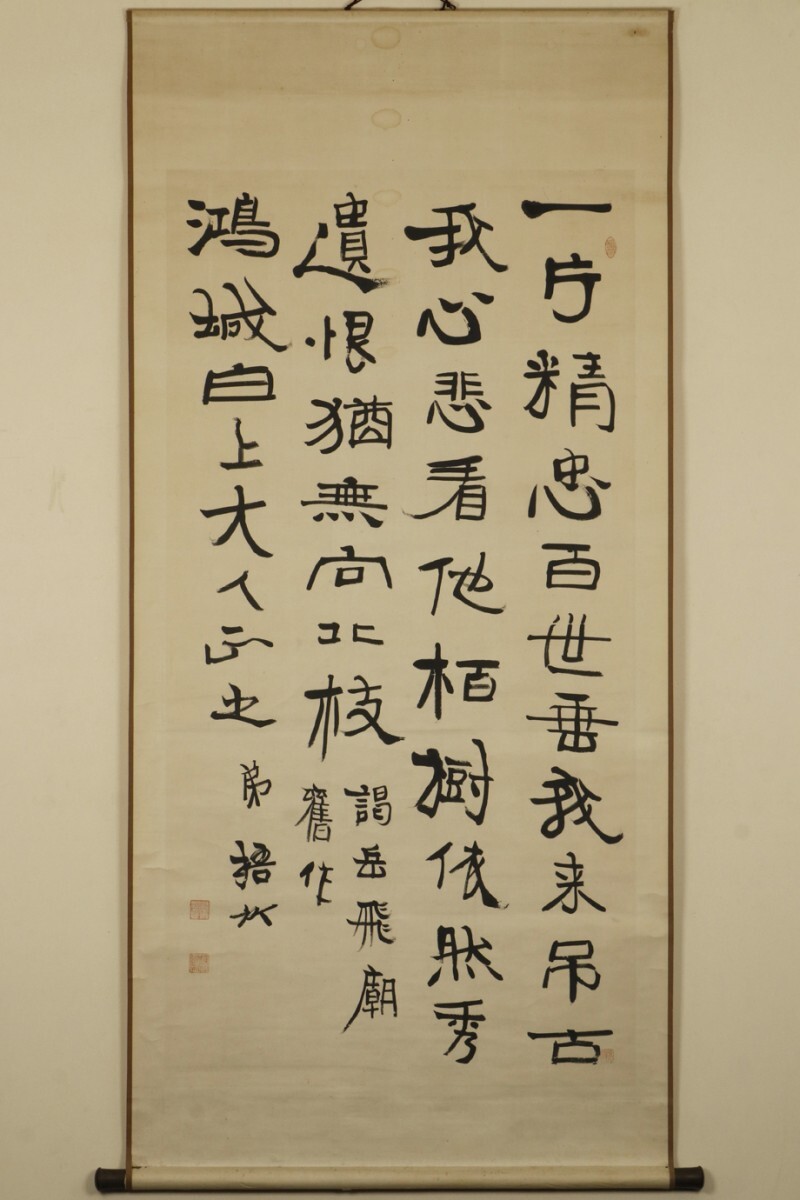 一片精忠百世垂我来吊古
我心悲看他栢樹依然秀
遺恨猶無向北枝
謁岳飛廟
舊作
鴻城白上大人正之
弟梧竹